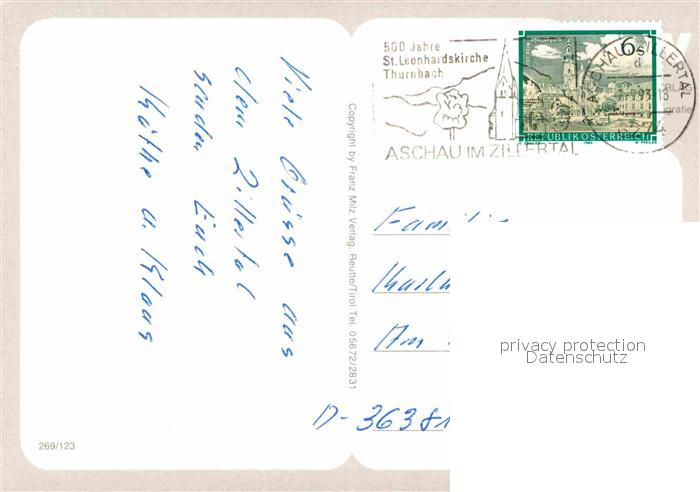 Viele Grüsse aus
dem Zillertal
senden Euch
Käthe u. Klaas
269/123
Copyright by Franz Milz Verlag, Reutte/Tirol Tel. 05672/2831
500 Jahre
St. Leonhardskirche
Thurnbach
ASCHAU IM ZILLERTAL
6s
REPUBLIK ÖSTERREICH
ASCHAU ZILLERTAL
Familie
Am
D-36381
privacy protection
Datenschutz